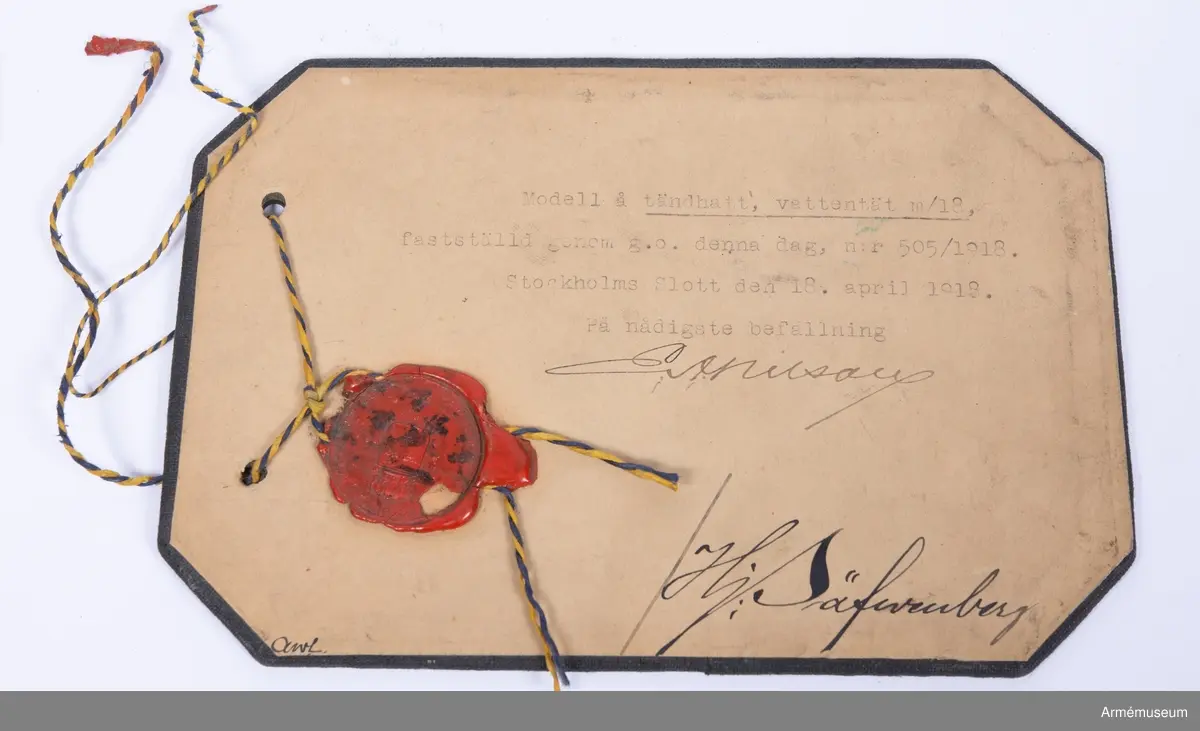 Modell å tändhatt, vattentät m/18,
fastställd genom g.o. denna dag, n:r 505/1918.
Stockholms Slott den 18. april 1918.
På nådigste befallning
Hj. Säfwenberg
Armémuseum